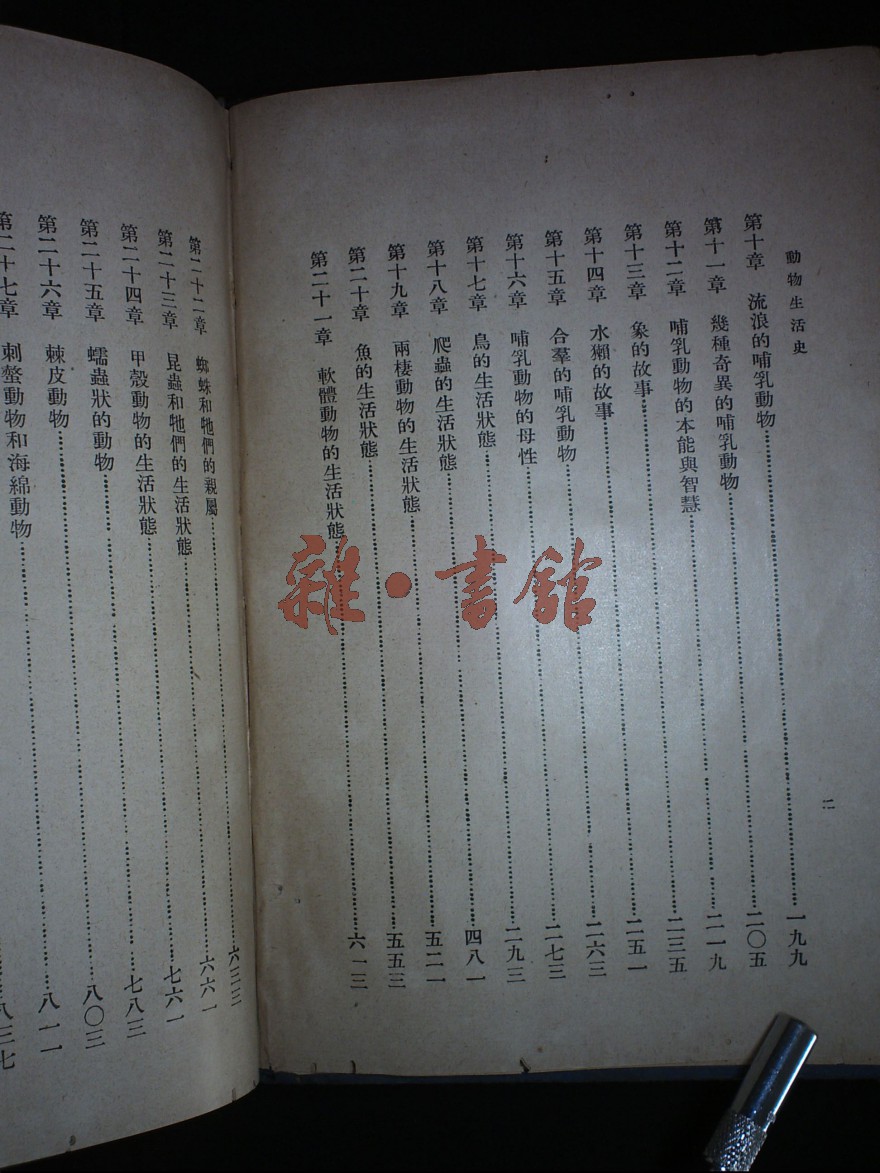 動物生活史
二
第十章 流浪的哺乳動物……一九九
第十一章 幾種奇異的哺乳動物……二〇五
第十二章 哺乳動物的本能與智慧……二一九
第十三章 象的故事……二三五
第十四章 水獺的故事……二五一
第十五章 合羣的哺乳動物……二六三
第十六章 哺乳動物的母性……二七三
第十七章 鳥的生活狀態……二九三
第十八章 爬蟲的生活狀態……四八一
第十九章 兩棲動物的生活狀態……五二一
第二十章 魚的生活狀態……五五三
第二十一章 軟體動物的生活狀態……六一三
第二十二章 蜘蛛和牠們的親屬……六三三
第二十三章 昆蟲和牠們的生活狀態……六六一
第二十四章 甲殼動物的生活狀態……七六一
第二十五章 蠕蟲狀的動物……七八三
第二十六章 棘皮動物……八〇三
第二十七章 刺螫動物和海綿動物……八一一
八三七
雜·書館